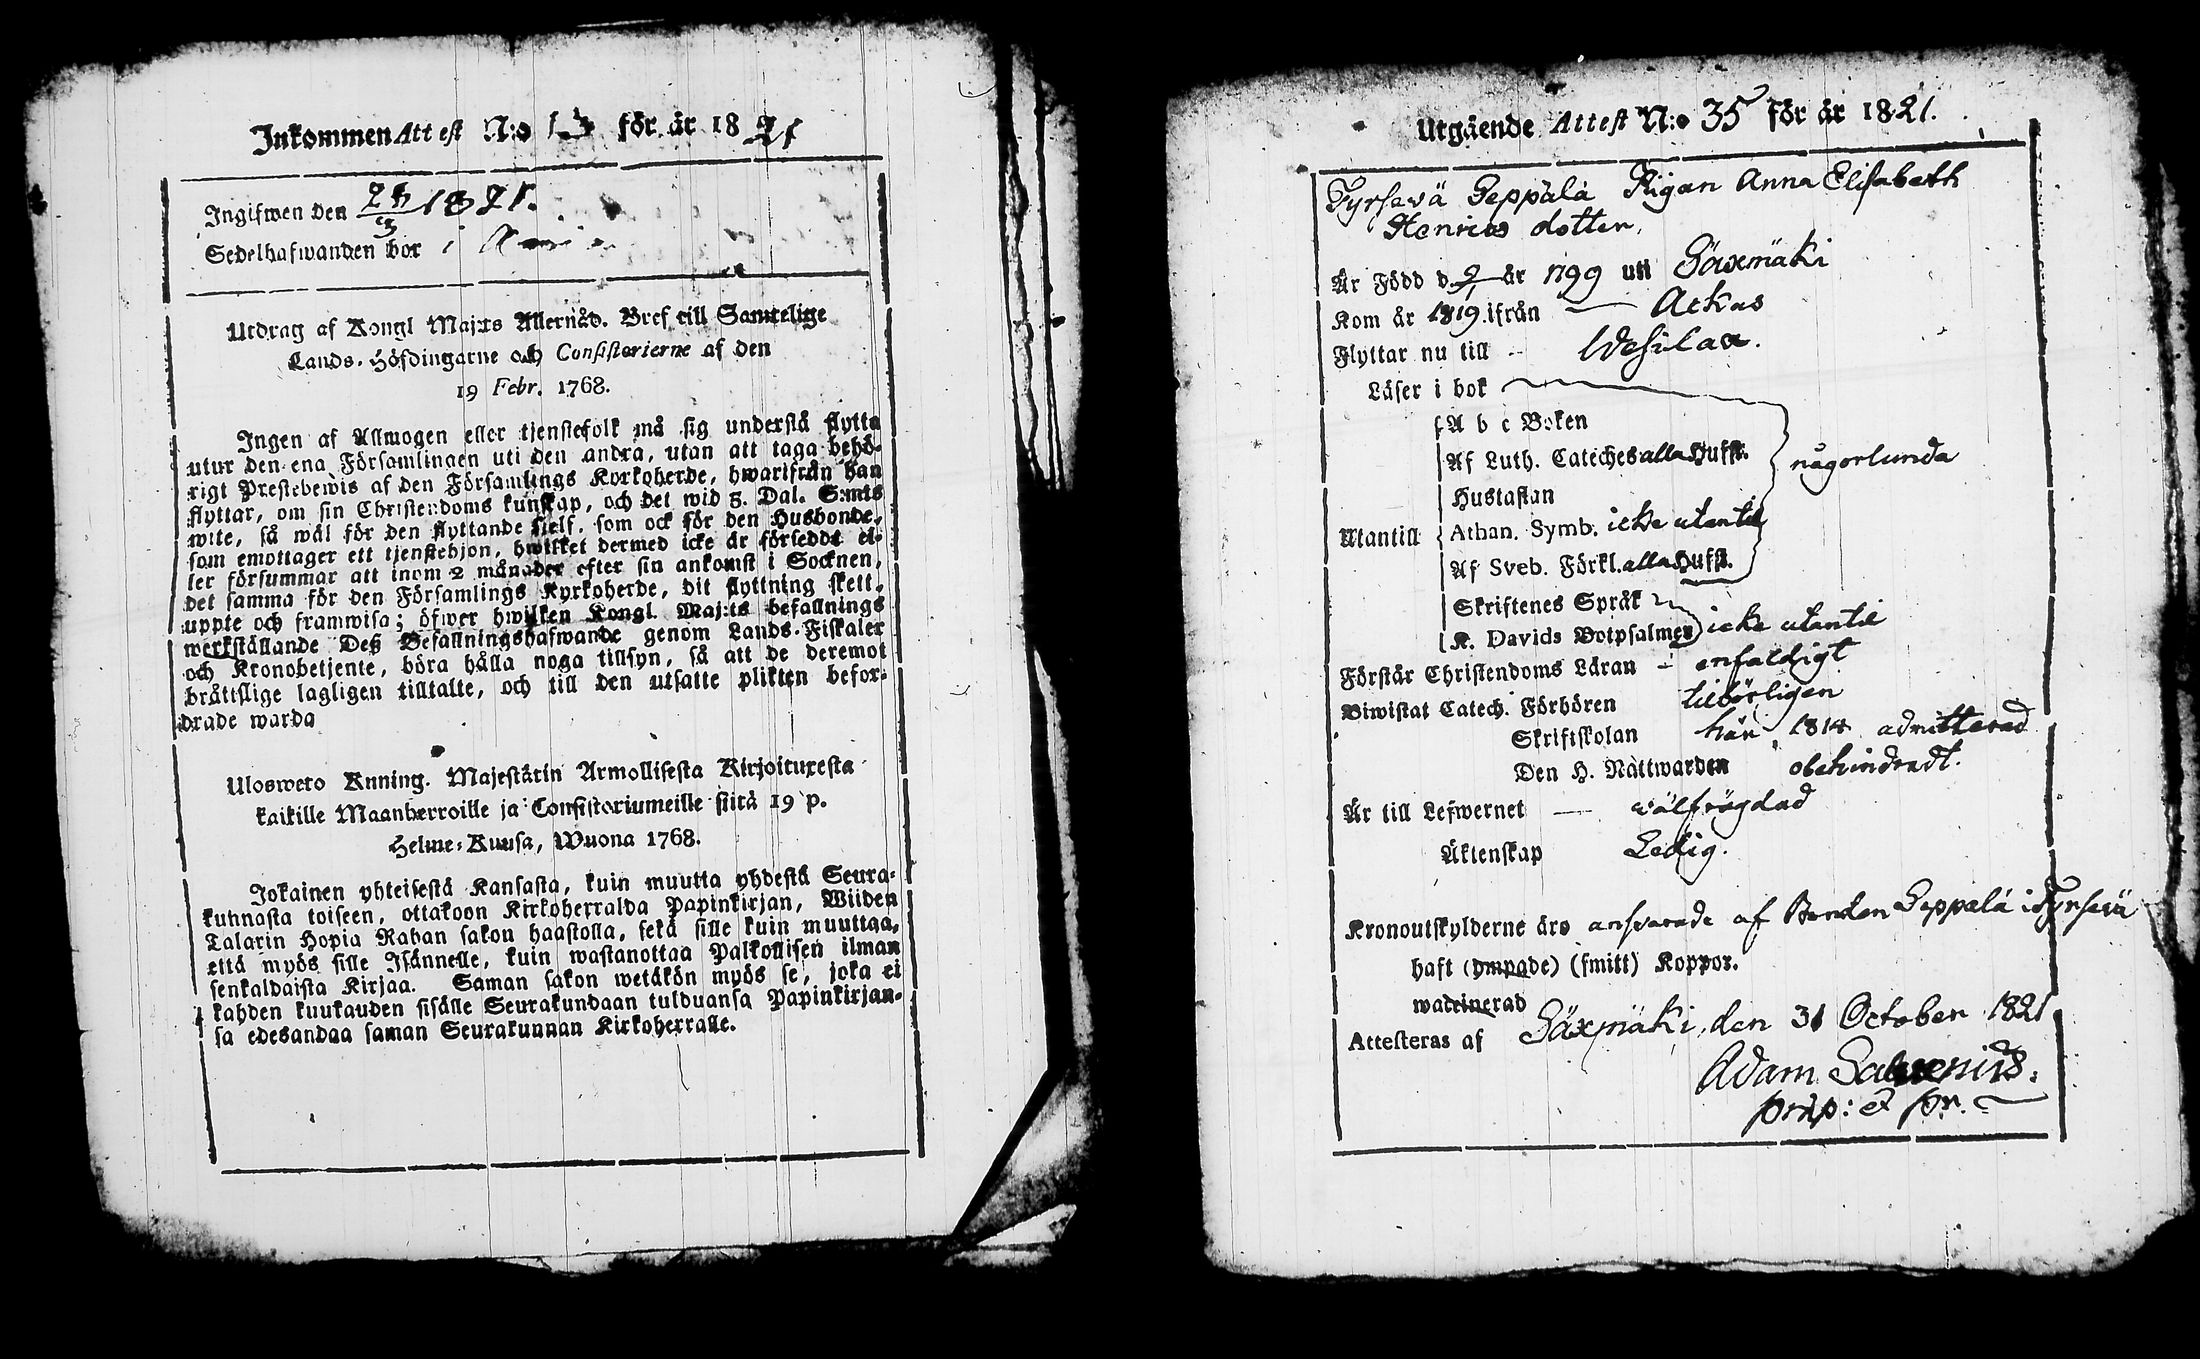 Inkommen Attest N:o 13 för år 1821
Ingifwen den 1821.
Sedelhafwanden bor i
Utdrag af Kongl Maj:ts Allernåd. Bref till Samtelige
Lands-Höfdingarne och Consistorierne af den
19 Febr. 1768.
Ingen af Allmogen eller tjenstefolk må sig understå flytta
utur den ena Församlingen uti den andra, utan att taga behö-
rigt Prestebewis af den Församlings Kyrkoherde, hwarifrån han
flyttar, om sin Christendoms kunskap, och det wid 5. Dal. S:mts
wite, så wäl för den flyttande sielf, som ock för den Husbonde,
som emottager ett tjenstehjon, hwilket dermed icke är förseddt el-
ler försummar att inom 2 månader efter sin ankomst i Socknen,
det samma för den Församlings Kyrkoherde, dit flyttning skett,
uppte och framwisa; öfwer hwilken Kongl. Maj:ts befallnings
werkställande Deß Befallningshafwande genom Lands-Fiskaler
och Kronobetjente, böra hålla noga tillsyn, så att de deremot
bråttslige lagligen tilltalte, och till den utsatte plikten befor-
drade warda
Ulosweto Knning. Majestätin Armollisesta Kirjoituxesta
kaikille Maanherroille ja Consistoriumeille siitä 19 p.
Helme-Kuusa, Wuona 1768.
Jokainen yhteisestä Kansasta, kuin muutta yhdestä Seura-
kunnasta toiseen, ottakoon Kirkoherralda Papinkirjan, Wiiden
Talarin Hopia Rahan sakon haastolla, sekä sille kuin muuttaa,
että myös sille Isännelle, kuin wastanottaa Palkollisen ilman
senkaldaista Kirjaa. Saman sakon wetäkön myös se, joka ei
kahden kuukauden sisälle Seurakundaan tulduansa Papinkirjan-
sa edesandaa saman Seurakunnan Kirkoherralle.
Utgående Attest N:o 35 för år 1821.
Tyrsevä Seppälä Pigan Anna Elisabeth
Henrics dotter,
Är Född d. år 1799 uti Säxmäki
Kom år 1819 ifrån Ackas
Flyttar nu till Wesilax.
Läser i bok
A b c Boken
Af Luth. Cateches alla Hufst.
någorlunda
Hustaflan
Utantill Athan. Symb. icke utantil
Af Sveb. Förkl. alla Hufst.
Skriftenes Språk
K. Davids Botpsalmer icke utantil
Förstår Christendoms Läran enfaldigt
Biwistat Catech. Förhören tilbörligen
Skriftskolan här 1814 admitterad
Den H. Nattwarden obehindradt.
Är till Lefwernet wälfrägdad
Äktenskap Ledig.
Kronoutskylderne äro answarade af Bonden Seppälä i Tyrsevä
haft (ympade) (smitt) Koppor.
waccinerad
Attesteras af Säxmäki, den 31 October 1821
Adam
præp: et pr.